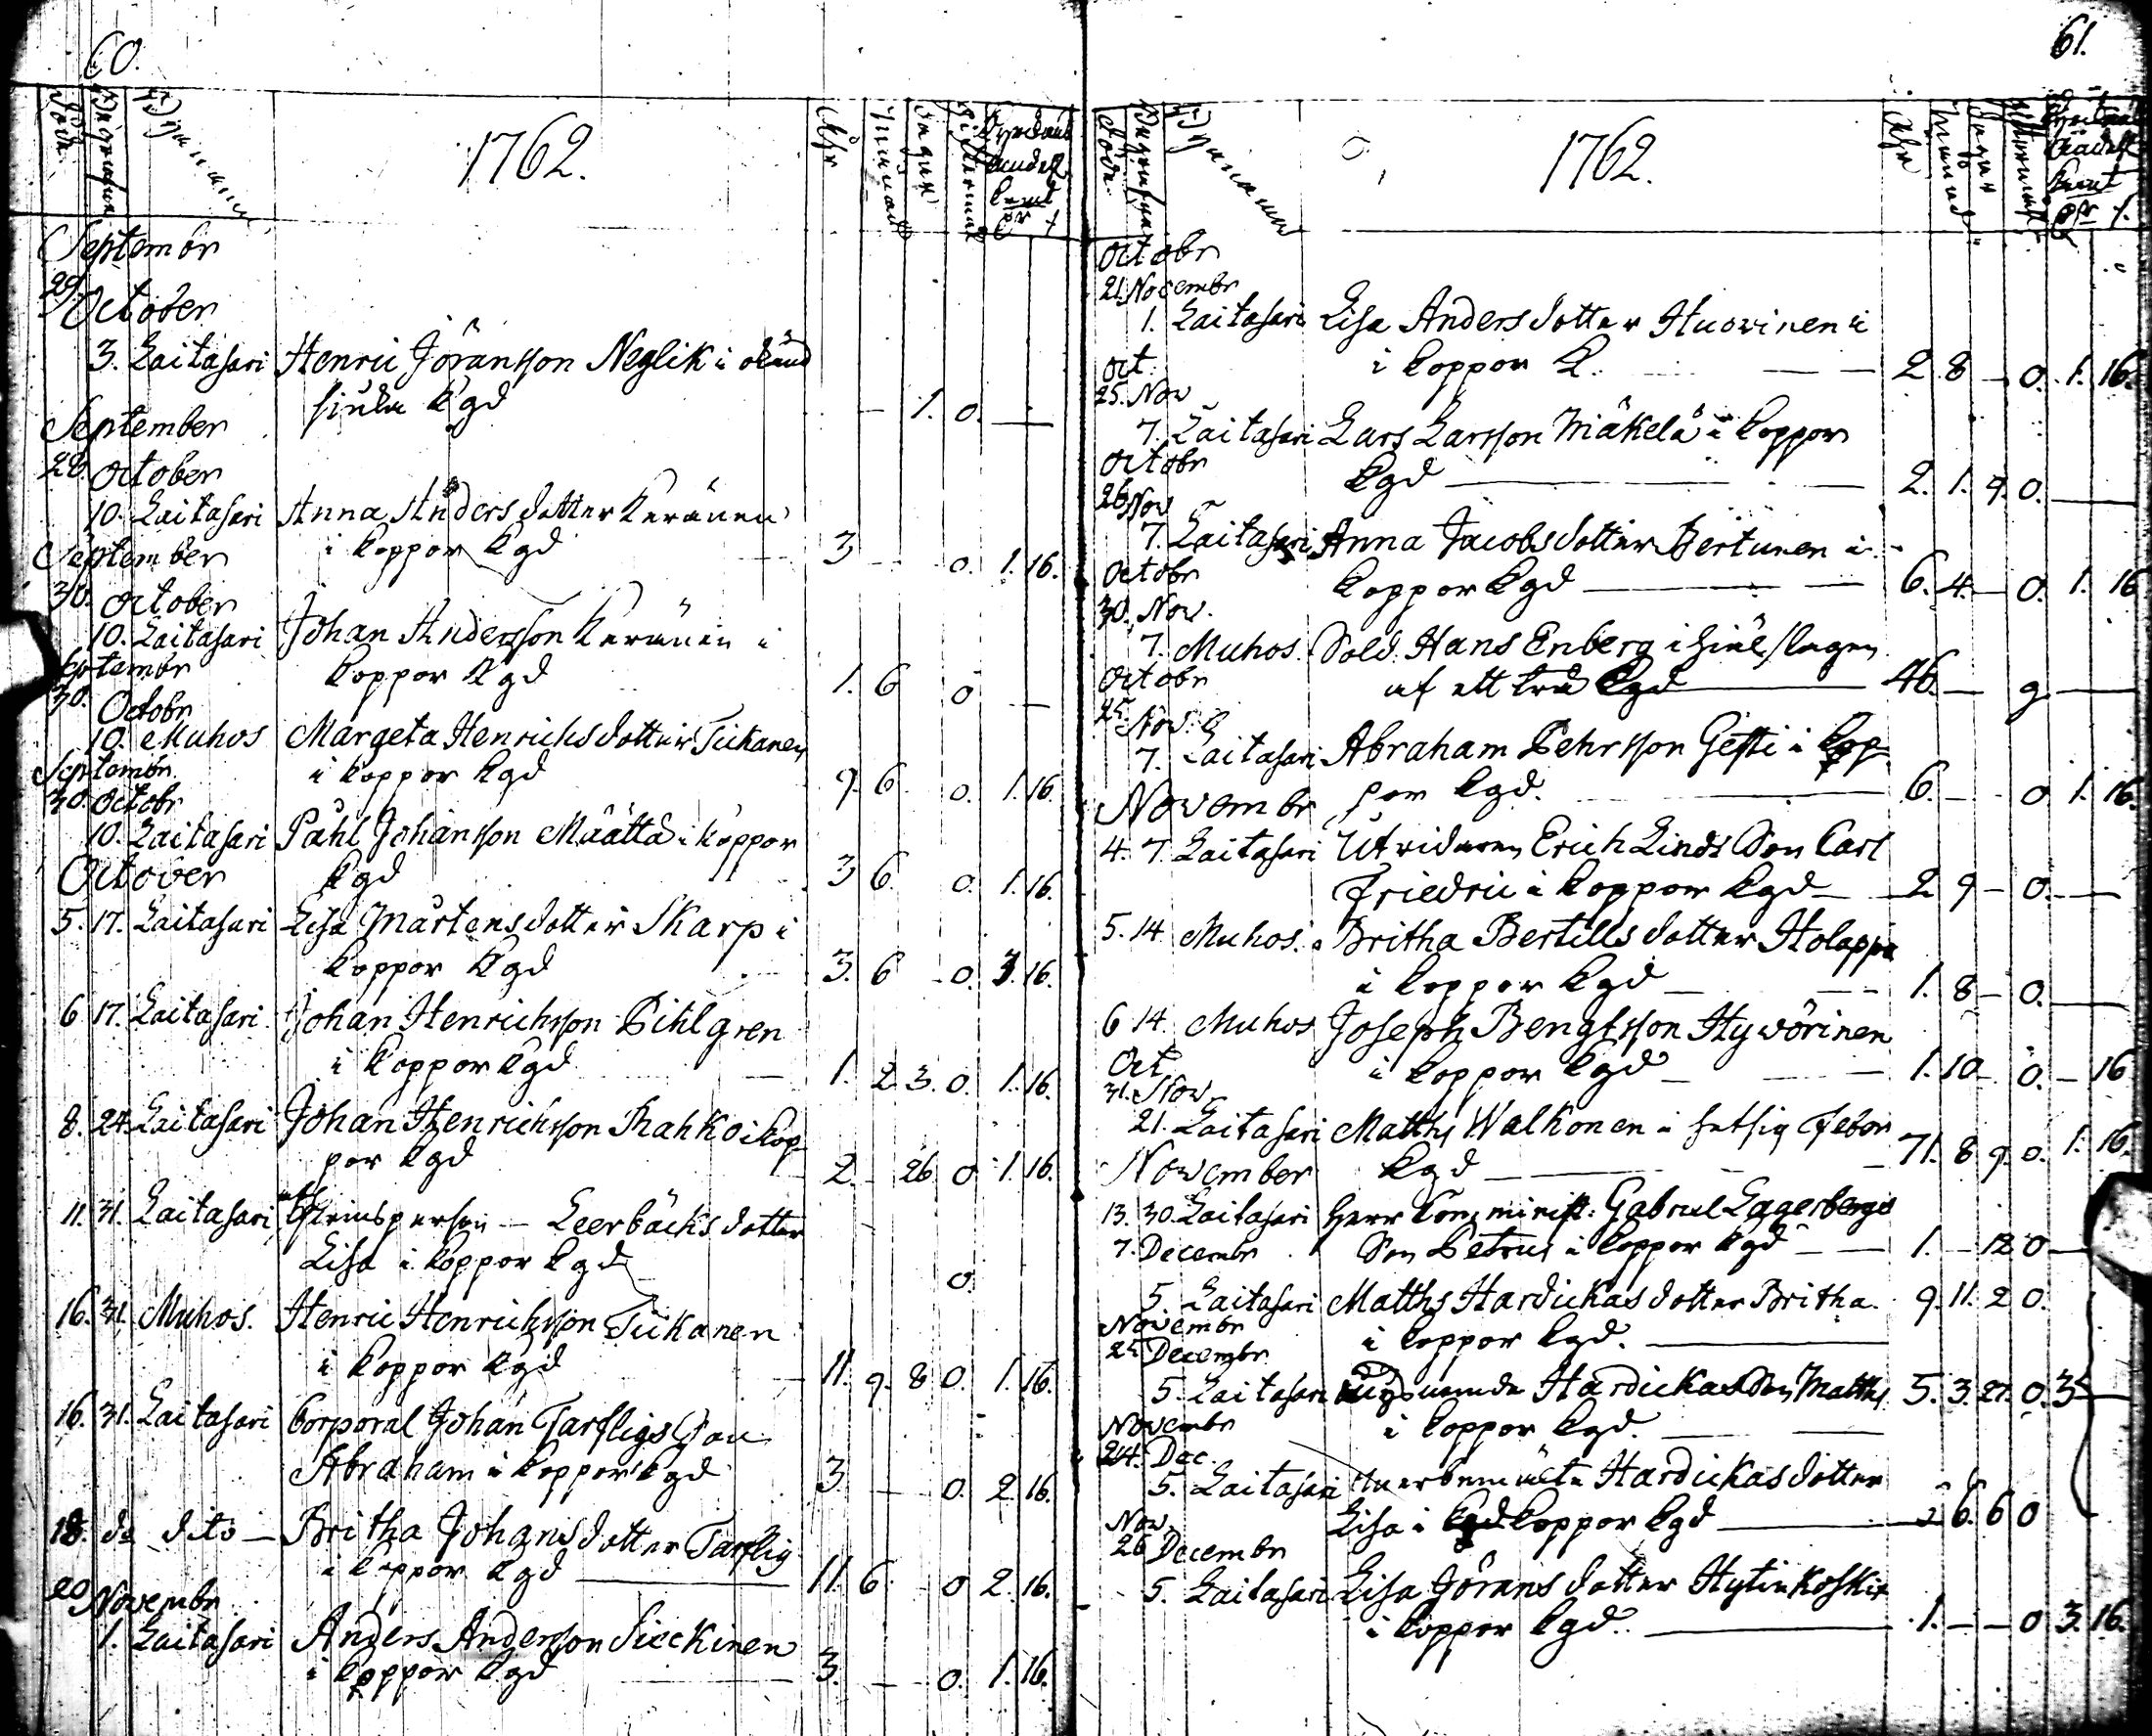 60.
1762.
Åhr
Septembr
29. October
3. Laitasari Henric Jöransson Neglik i okänd
siuka Kgd — 1. 0. —
September
28. October
10. Laitasari Anna Andersdotter Keränen
i koppor Kgd 3 0. 1. 16.
September
30. October
10. Laitasari Johan Andersson Keränen i
koppor Kgd 1. 6 0 —
Septembr
30. Octobr
10. Muhos Margeta Henrichsdotter Tiikanen
i koppor Kgd 9. 6 0. 1. 16
Septembr
30. Octobr
10. Laitasari Påhl Johansson Määttä i koppor
Kgd 3 6. 0. 1. 16.
October
5. 17. Laitasari Lisa Mårtensdotter Skarp i
koppor Kgd 3. 6 0. 3. 16.
6 17. Laitasari Johan Henrichsson Pihlgren
i koppor Kgd 1. 2 3. 0. 1. 16.
8. 24. Laitasari Johan Henrichsson Rahko i kop
por Kgd 2. 26 0 1. 16.
11. 31. Laitasari — Leerbäcks dotter
Lisa i koppor Kgd 0.
16. 31. Muhos. Henric Henrichsson Tiikanen
i koppor Kgd 11. 9. 8 0. 1. 16.
16. 31. Laitasari Corporal Johan Tarfligs Son
Abraham i koppor Kgd 3 — 0. 2. 16.
18. do dito — Britha Johansdotter Tarflig
i koppor Kgd 11. 6 0 2. 16.
20 Novembr
1. Laitasari Anders Andersson Sieckinen
i koppor Kgd 3. — 0. 1. 16.
61.
1762.
Åhr
Octobr
21. Novembr
1. Laitasari Lisa Andersdotter Huovinen i
i koppor K. 2. 8 — 0. 1. 16.
Oct.
25. Nov
7. Laitasari Lars Larsson Mäkelä i koppor
Kgd 2. 1. 9. 0. —
Octobr
26 Nov
7. Laitasari Anna Jacobsdotter Pertunen i
koppor Kgd 6. 4. — 0. 1. 16
Octobr
30. Nov.
7. Muhos. Sold. Hans Enberg i hiälslagen
af ett träd Kgd 46. — 9. —
Octobr
25. Nov.
7. Laitasari Abraham Pehrsson Gesti i kop
por Kgd. 6. — 0. 1. 16.
Novembr
4. 7. Laitasari Utridaren Erich Linds Son Carl
Friedric i koppor Kgd — 2 9 — 0. —
5. 14. Muhos. Britha Bertillsdotter Holappa
i koppor Kgd 1. 8 — 0. —
6 14. Muhos Joseph Bengtsson Hyvörinen
i koppor Kgd 1. 10 0. — 16
Oct
31. Nov
21. Laitasari Matths Walkonen i hetsig Feber
Kgd 71. 8 9. 0. 1. 16.
November
13. 30. Laitasari Herr Comminist: Gabriel Lagerbergs
Son Petrus i koppor Kgd — 1. — 12 0 —
7. Decembr
5. Laitasari Matths Hardickas dotter Britha 9. 11. 2 0.
i koppor Kgd.
Novembr
25 Decembr
5. Laitasari Hardickas Son Matths 5. 3. 27. 0. 3
i koppor Kgd.
Novembr
24. Dec.
5. Laitasari Hardickas dotter
Lisa i koppor Kgd 2 6. 6 0
Nov.
26 Decembr
5. Laitasari Lisa Jöransdotter Hytinkoski
i koppor Kgd. 1. — — 0 3. 16.